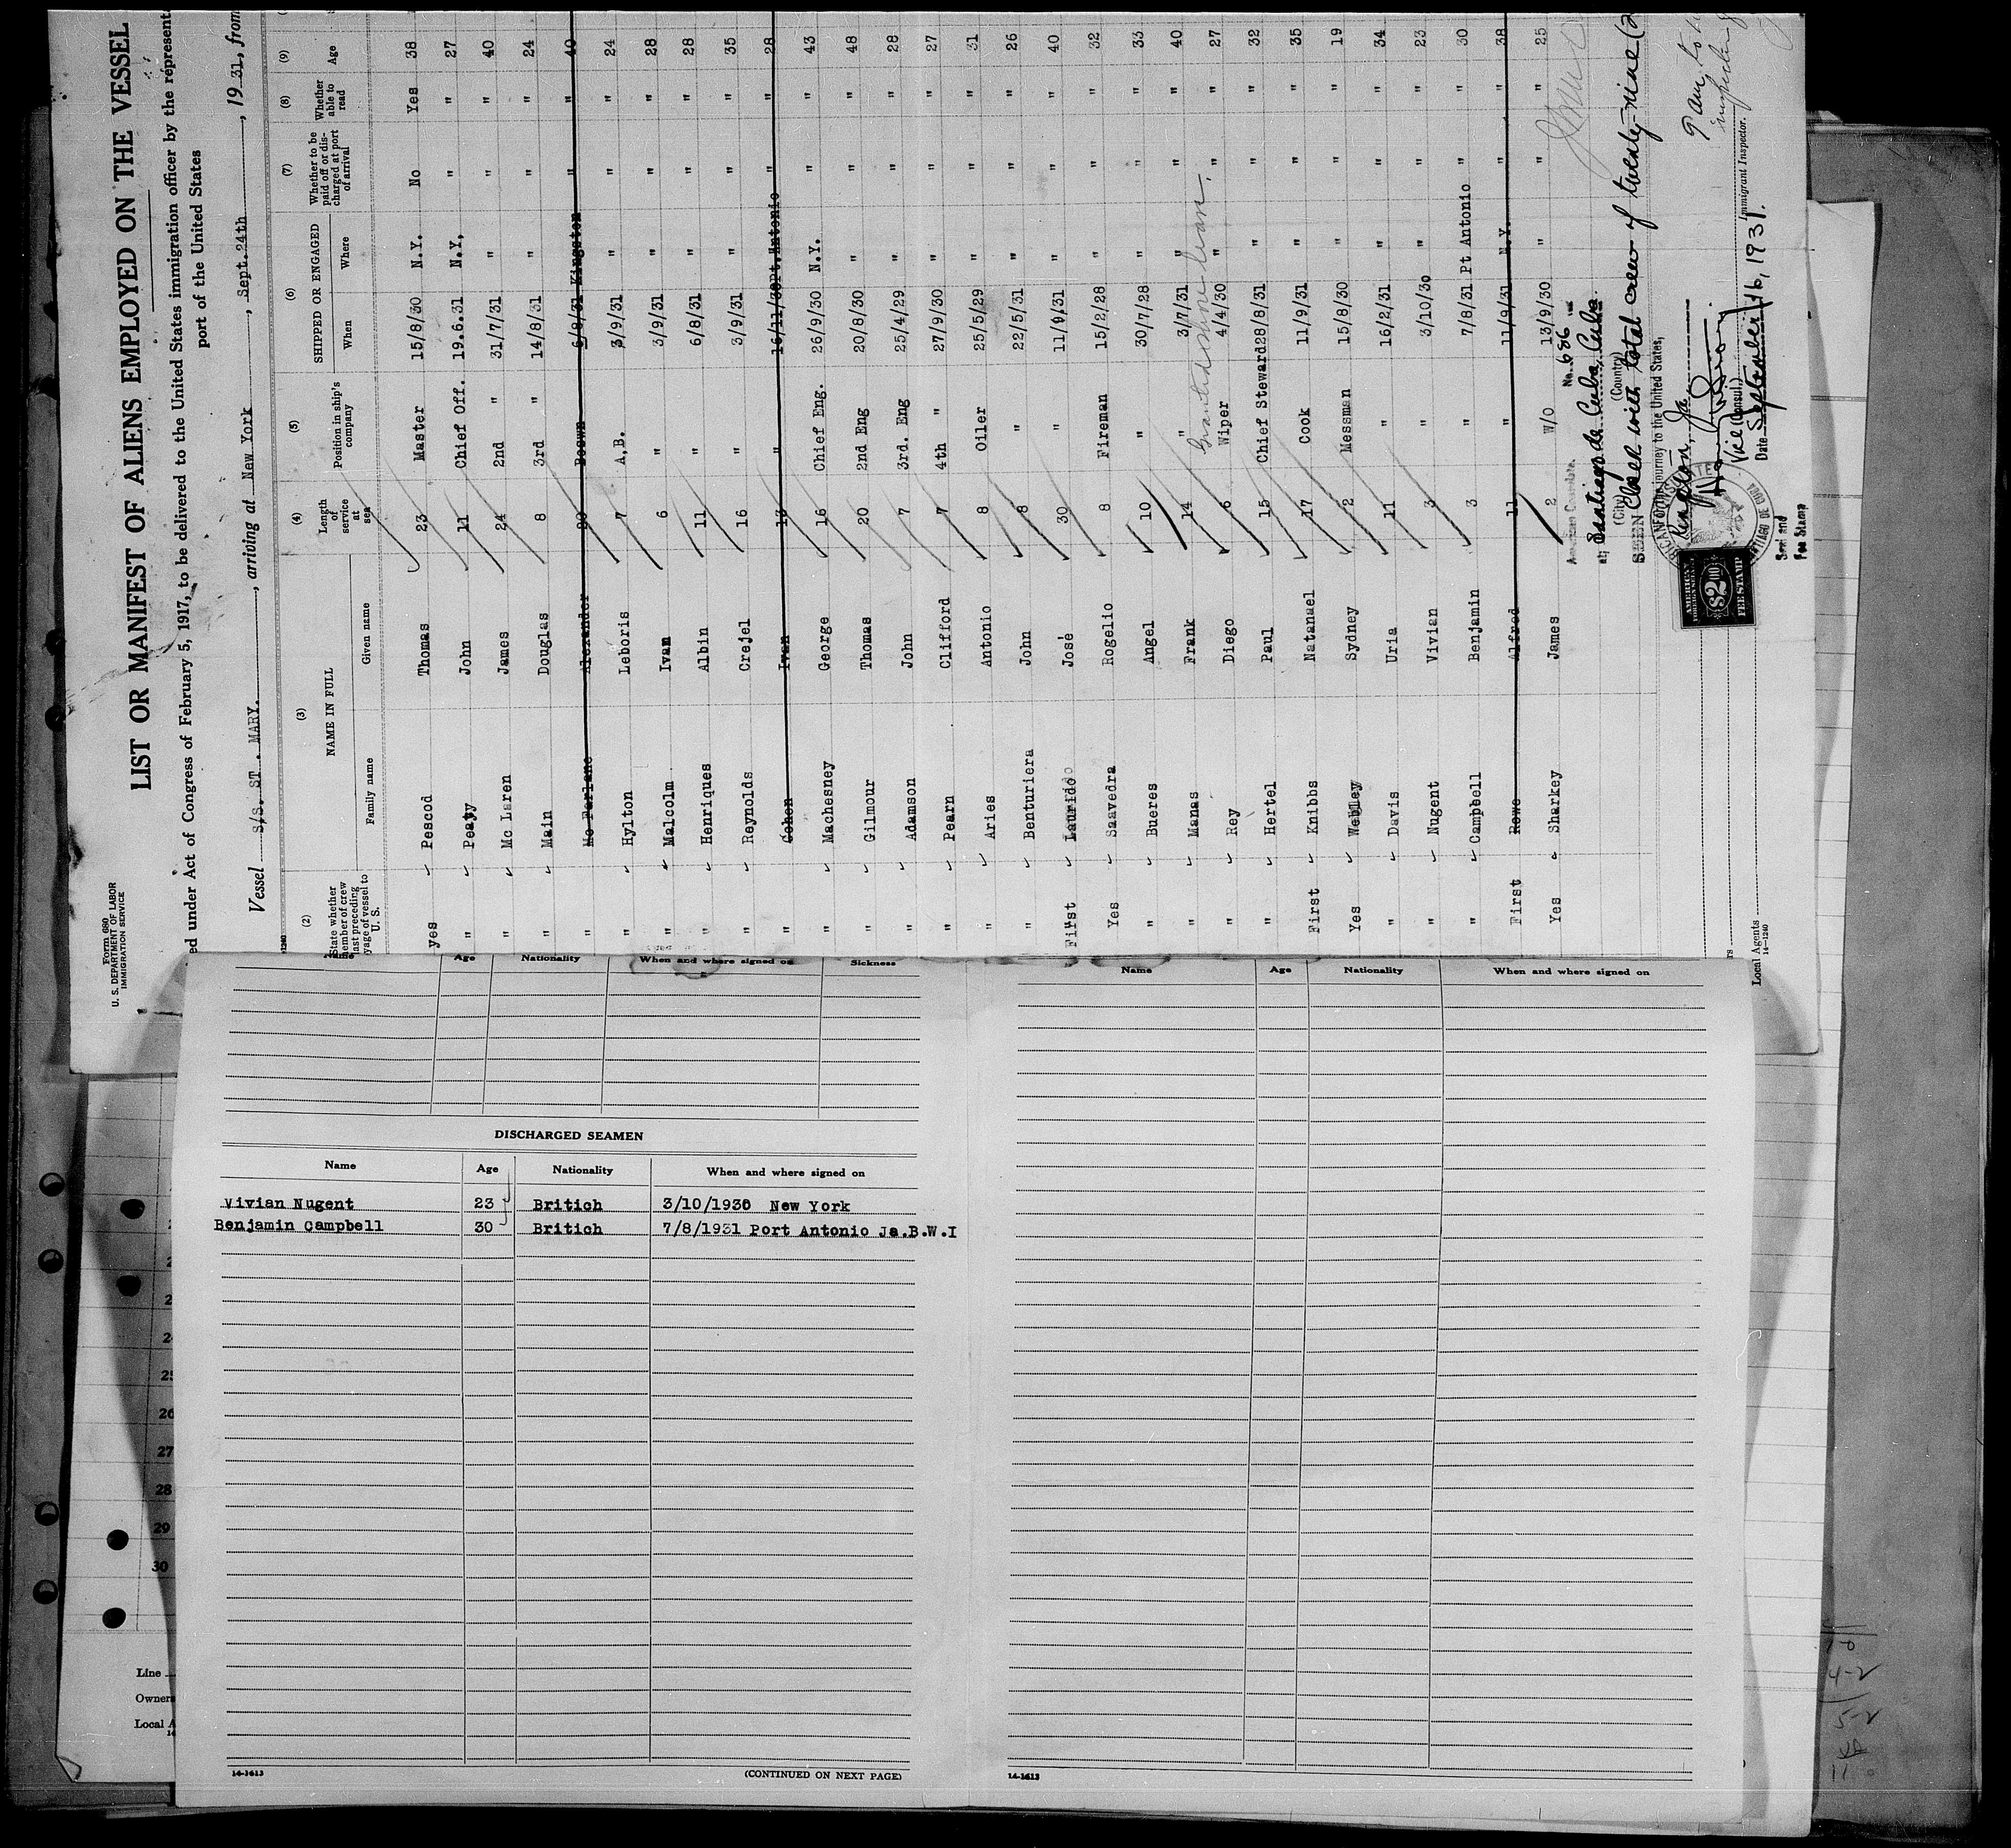 Form 680
U. S. DEPARTMENT OF LABOR
IMMIGRATION SERVICE
LIST OR MANIFEST OF ALIENS EMPLOYED ON THE VESSEL
ed under Act of Congress of February 5, 1917, to be delivered to the United States immigration officer by the represent
port of the United States
Vessel S/S. ST. MARY., arriving at New York, Sept. 24th, 1931, from
(2) (3) (4) (5) (6) (7) (8) (9)
State whether member of crew last preceding yage of vessel to U. S. NAME IN FULL Family name Given name Length of service at sea Position in ship's company SHIPPED OR ENGAGED When Where Whether to be paid off or discharged at port of arrival Whether able to read Age
yes Pescod Thomas 23 Master 15/8/30 N.Y. No Yes 38
" Peaty John 11 Chief Off. 19.6.31 N.Y, " " 27
" Mc Laren James 24 2nd " 31/7/31 " " " 40
" Main Douglas 8 3rd " 14/8/31 " " " 24
" Mc Farlane Alexander 20 Boswn 6/8/31 Kingston " " 40
" Hylton Leboris 7 A.B. 3/9/31 " " " 24
" Malcolm Ivan 6 " 3/9/31 " " " 28
" Henriques Albin 11 " 6/8/31 " " " 28
" Reynolds Crejel 16 " 3/9/31 " " " 35
" Cohen Ivan 13 " 16/11/30 Pt. Antonio " " 28
" Machesney George 16 Chief Eng. 26/9/30 N.Y. " " 43
" Gilmour Thomas 20 2nd Eng 20/8/30 " " " 48
" Adamson John 7 3rd. Eng 25/4/29 " " " 28
" Pearn Clifford 7 4th " 27/9/30 " " " 27
" Aries Antonio 8 Oiler 25/5/29 " " " 31
" Benturiera John 8 " 22/5/31 " " " 26
First Laurido José 30 " 11/9/31 " " " 40
Yes Saavedra Rogelio 8 Fireman 15/2/28 " " " 32
" Bueres Angel 10 " 30/7/28 " " " 33
" Manas Frank 14 " 3/7/31 " " " 40
Granted shore leave.
" Rey Diego 6 Wiper 4/4/30 " " " 27
" Hertel Paul 15 Chief Steward 28/8/31 " " " 32
First Knibbs Natanael 17 Cook 11/9/31 " " " 35
Yes Webley Sydney 2 Messman 15/8/30 " " " 19
" Davis Uria 11 " 16/2/31 " " " 34
" Nugent Vivian 3 " 3/10/30 " " " 23
" Campbell Benjamin 3 " 7/8/31 Pt Antonio " " 30
First Rowe Alfred 11 " 11/9/31 N.Y. " " 38
Yes Sharkey James 2 W/O 13/9/30 " " " 25
American Consulate. No. 686
at Santiago de Cuba, Cuba.
(City) (Country)
SEEN Clear with total crew of twenty-nine (2
For the journey to the United States,
Kingston, Ja.
Vice Consul.
Date September 16, 1931.
Immigrant Inspector.
AMERICAN
$2.00
FEE STAMP
Seal and
Fee Stamp
Local Agents
14—1240
Name Age Nationality When and where signed on Sickness
DISCHARGED SEAMEN
Name Age Nationality When and where signed on
Vivian Nugent 23 Britich 3/10/1930 New York
Benjamin Campbell 30 Britich 7/8/1931 Port Antonio Ja.B.W.I
14-1613 (CONTINUED ON NEXT PAGE)
Name Age Nationality When and where signed on
14-1613
25
26
27
28
29
30
Line
Owners
Local A